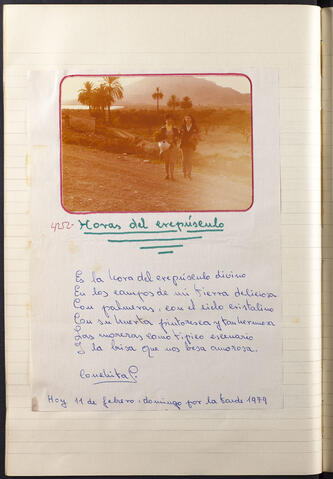 4252- Horas del crepúsculo
Es la hora del crepúsculo divino
En los campos de mi tierra deliciosa
Con palmeras, con el cielo cristalino
Con su huerta pintoresca y tan hermosa
Las moreras como típico escenario
Y la brisa que nos besa amorosa.
Conchita P.
Hoy 11 de febrero-domingo por la tarde 1979